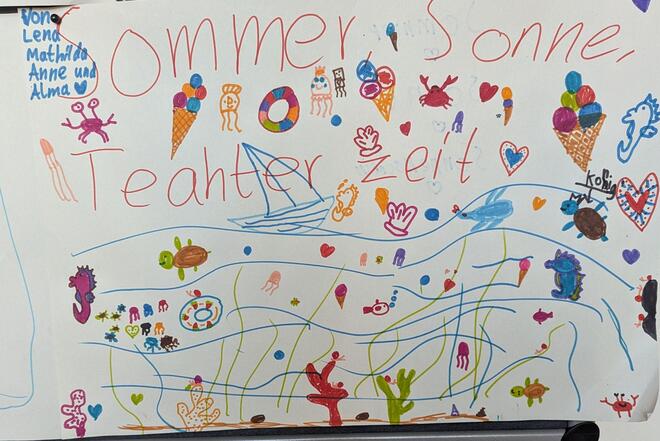 Von
Lena
Mathilda
Anne und
Alma
Sommer, Sonne,
Teahter zeit
König